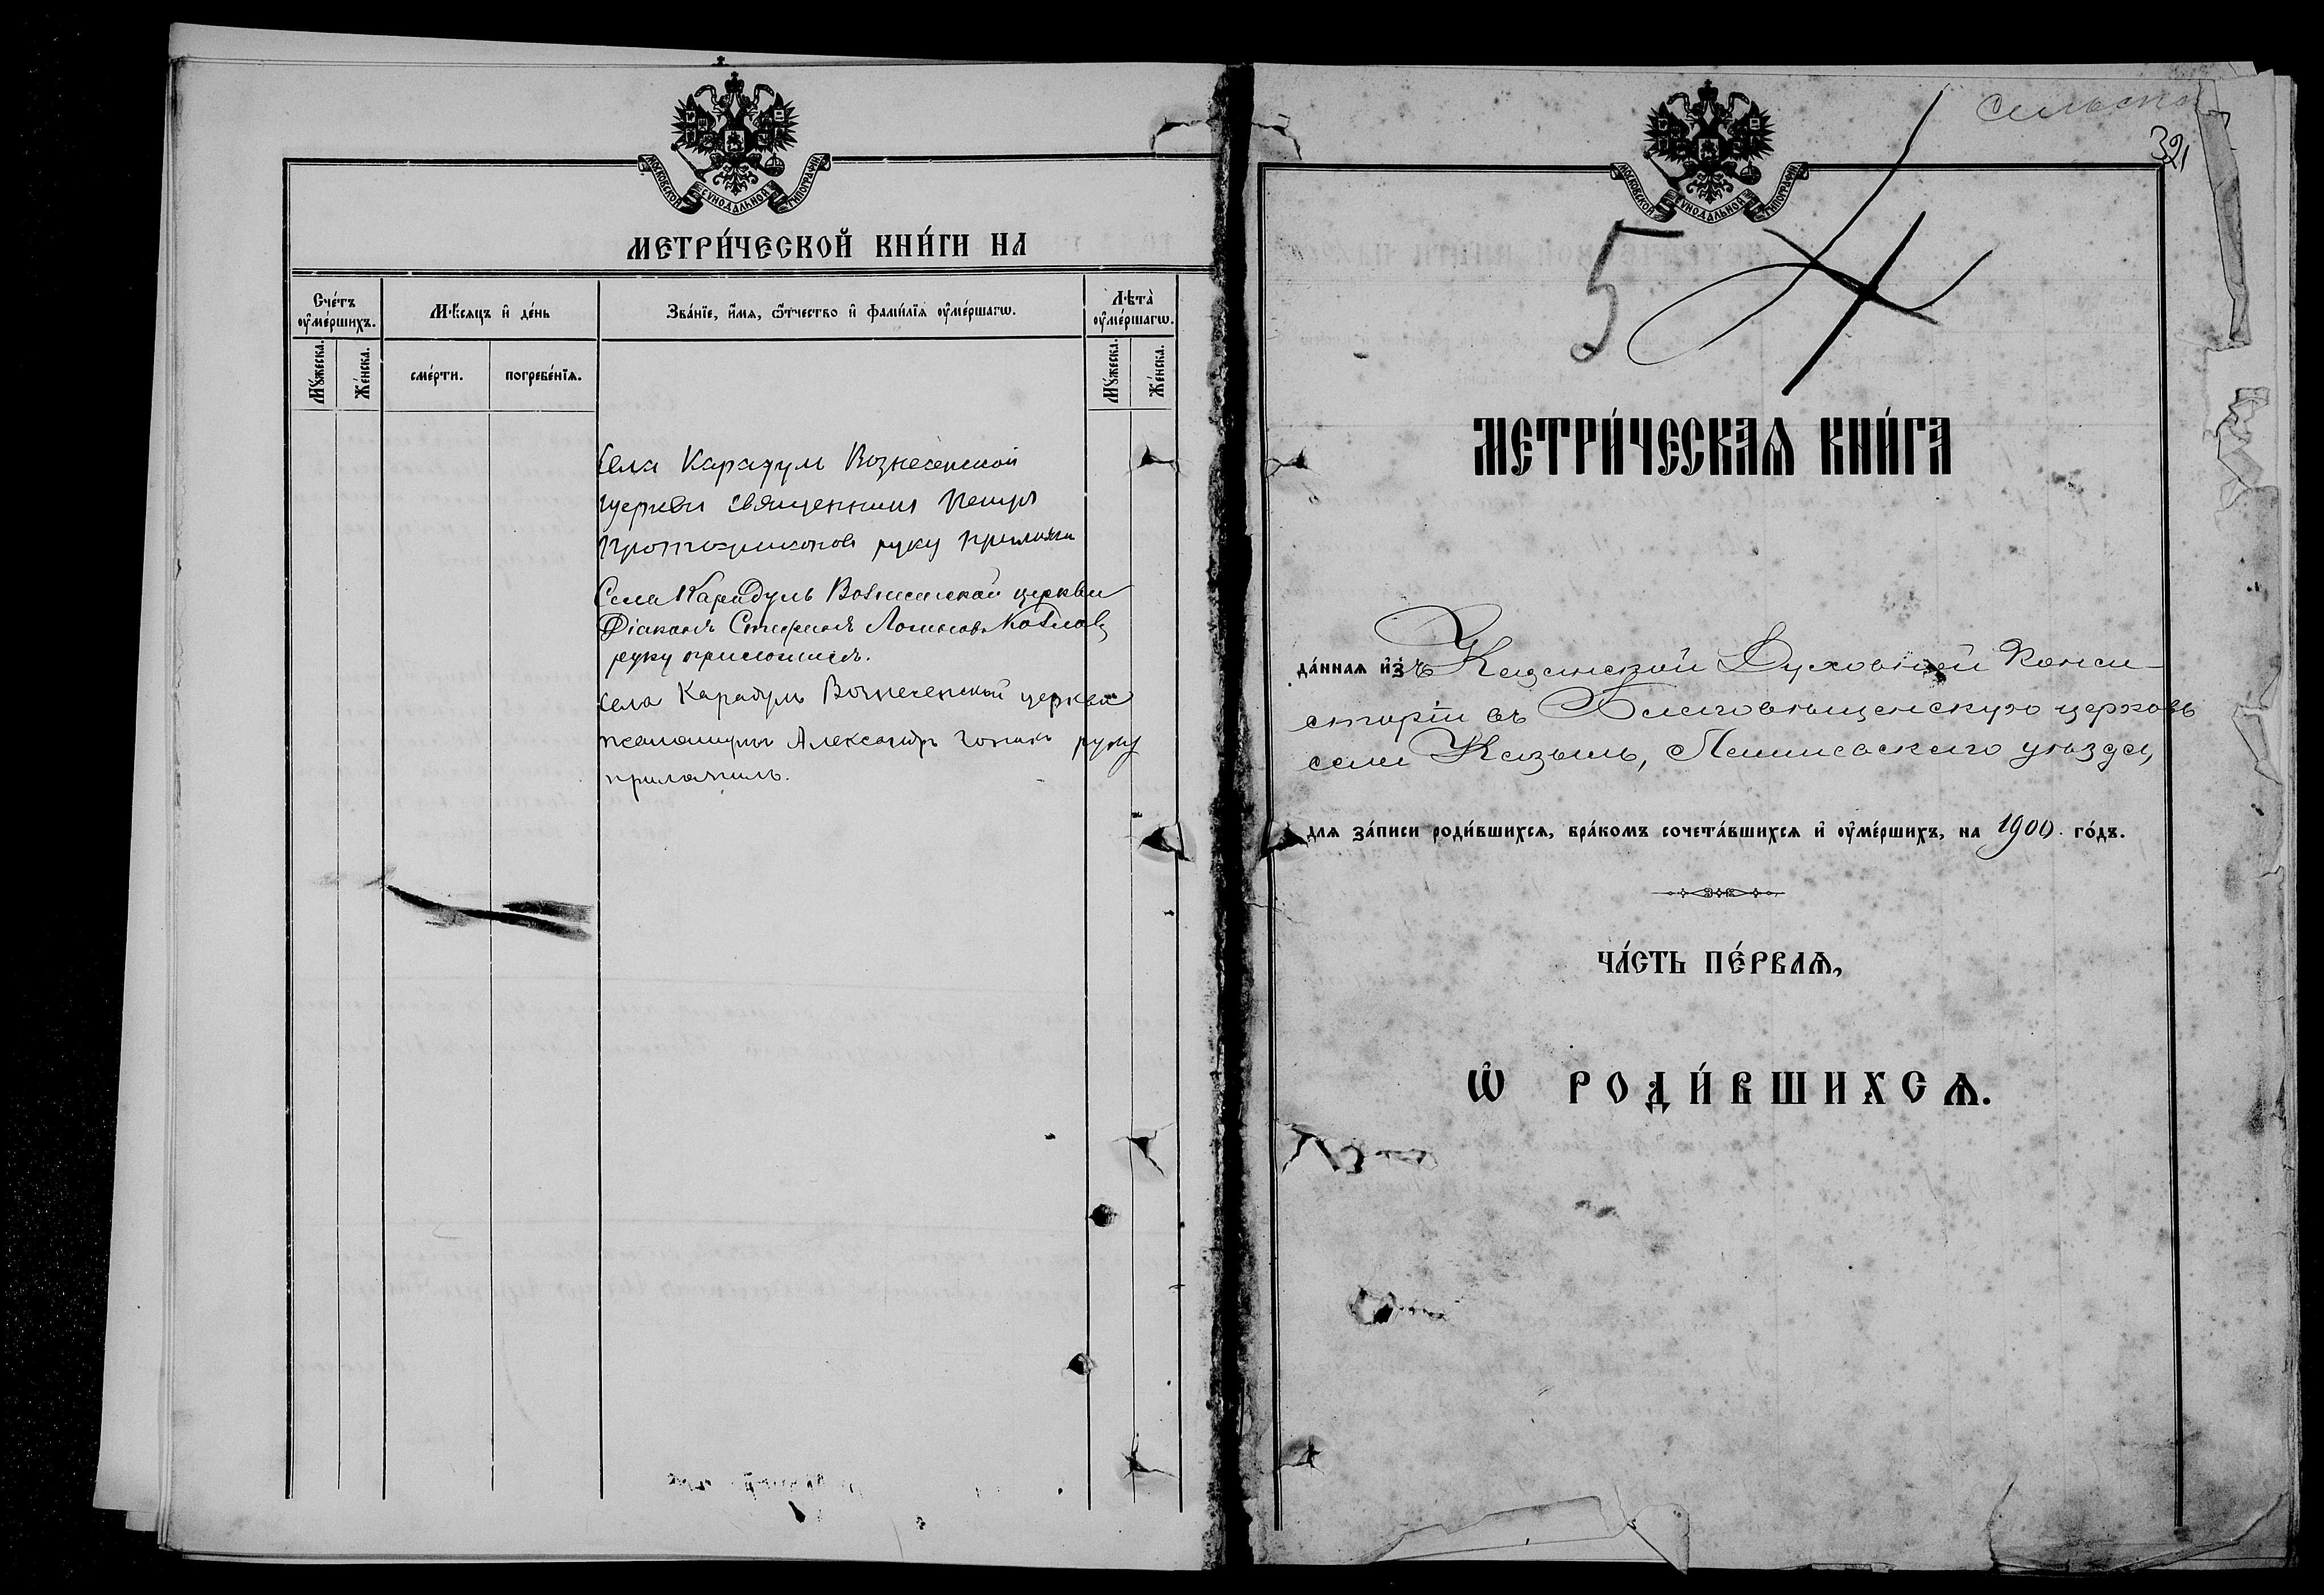 МОСКОВСКОЙ СѴНОДАЛЬНОЙ ТИПОГРАФІИ
МЕТРИ́ЧЕСКОЙ КНИ́ГИ НА
Сче́тъ ᲂу҆ме́ршихъ.
Мѣ́сяцъ и҆ де́нь
Зва́нїе, и҆́мѧ, ѻ҆́тчество и҆ фами́лїѧ ᲂу҆ме́ршагѡ.
Лѣта̀ ᲂу҆ме́ршагѡ.
Мꙋ́жеска.
Же́нска.
сме́рти.
погребе́нїѧ.
Мꙋ́жеска.
Же́нска.
Села Карадулъ Вознесенской
церкви священникъ Петръ
руку приложилъ
Села Карадулъ Вознесенской церкви
Діаконъ Стефанъ Козловъ
руку приложилъ.
Села Карадулъ Вознесенской церкви
псаломщикъ Александръ руку
приложилъ.
сельска
321
МОСКОВСКОЙ СѴНОДАЛЬНОЙ ТИПОГРАФІИ
5
МЕТРИ́ЧЕСКАѦ КНИ́ГА
да́ннаѧ и҆зъ Казанской Духовной Конси-
сторіи въ Благовѣщенскую церковь
села Казыль, Лаишевскаго уѣзда,
для за́писи роди́вшихсѧ, бра́комъ сочета́вшихсѧ и҆ ᲂу҆ме́ршихъ, на 1900. го́дъ.
ЧА́СТЬ ПЕ́РВАѦ,
Ѡ҆ РОДИ́ВШИХСѦ.